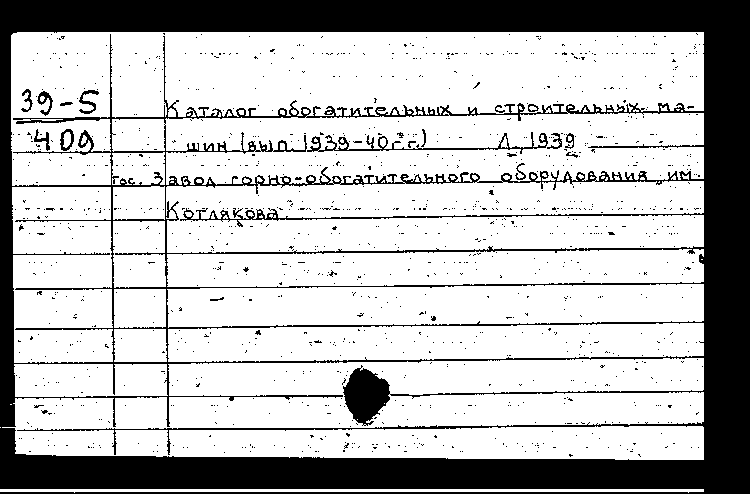 39-5
409
Каталог обогатительных и строительных ма-
шин (вып. 1939-40г.г.) Л., 1939
Гос. Завод горно-обогатительного оборудования им.
Котлякова